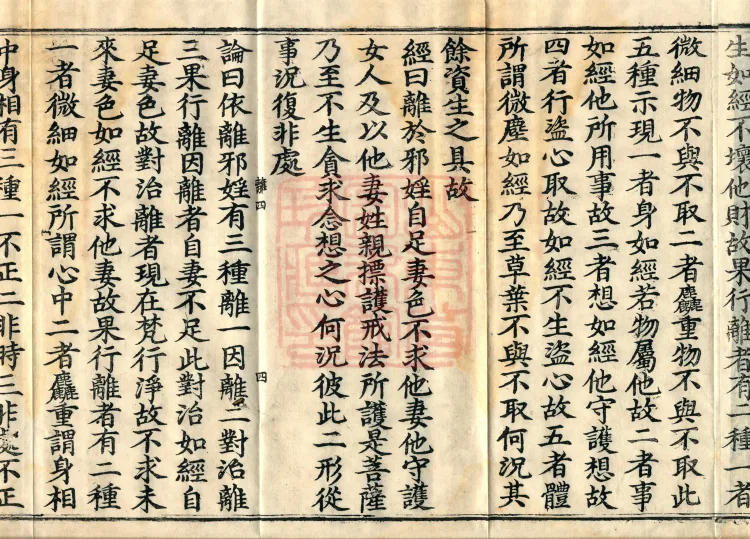 生如經不壞他財故果行離者有二種一者
微細物不與不取二者麤重物不與不取此
五種示現一者身如經若物屬他故二者事
如經他所用事故三者想如經他守護想故
四者行盜心取故如經不生盜心故五者體
所謂微塵如經乃至草葉不與不取何況其
餘資生之具故
經曰離於邪婬自足妻色不求他妻他守護
女人及以他妻姓親摽護戒法所護是菩薩
乃至不生貪求念想之心何況彼此二形從
事況復非處
離四
四
論曰依離邪婬有三種離一因離二對治離
三果行離因離者自妻不足此對治如經自
足妻色故對治離者現在梵行淨故不求未
來妻色如經不求他妻故果行離者有二種
一者微細如經所謂心中二者麤重謂身相
中身相有三種一不正二非時三非處不正